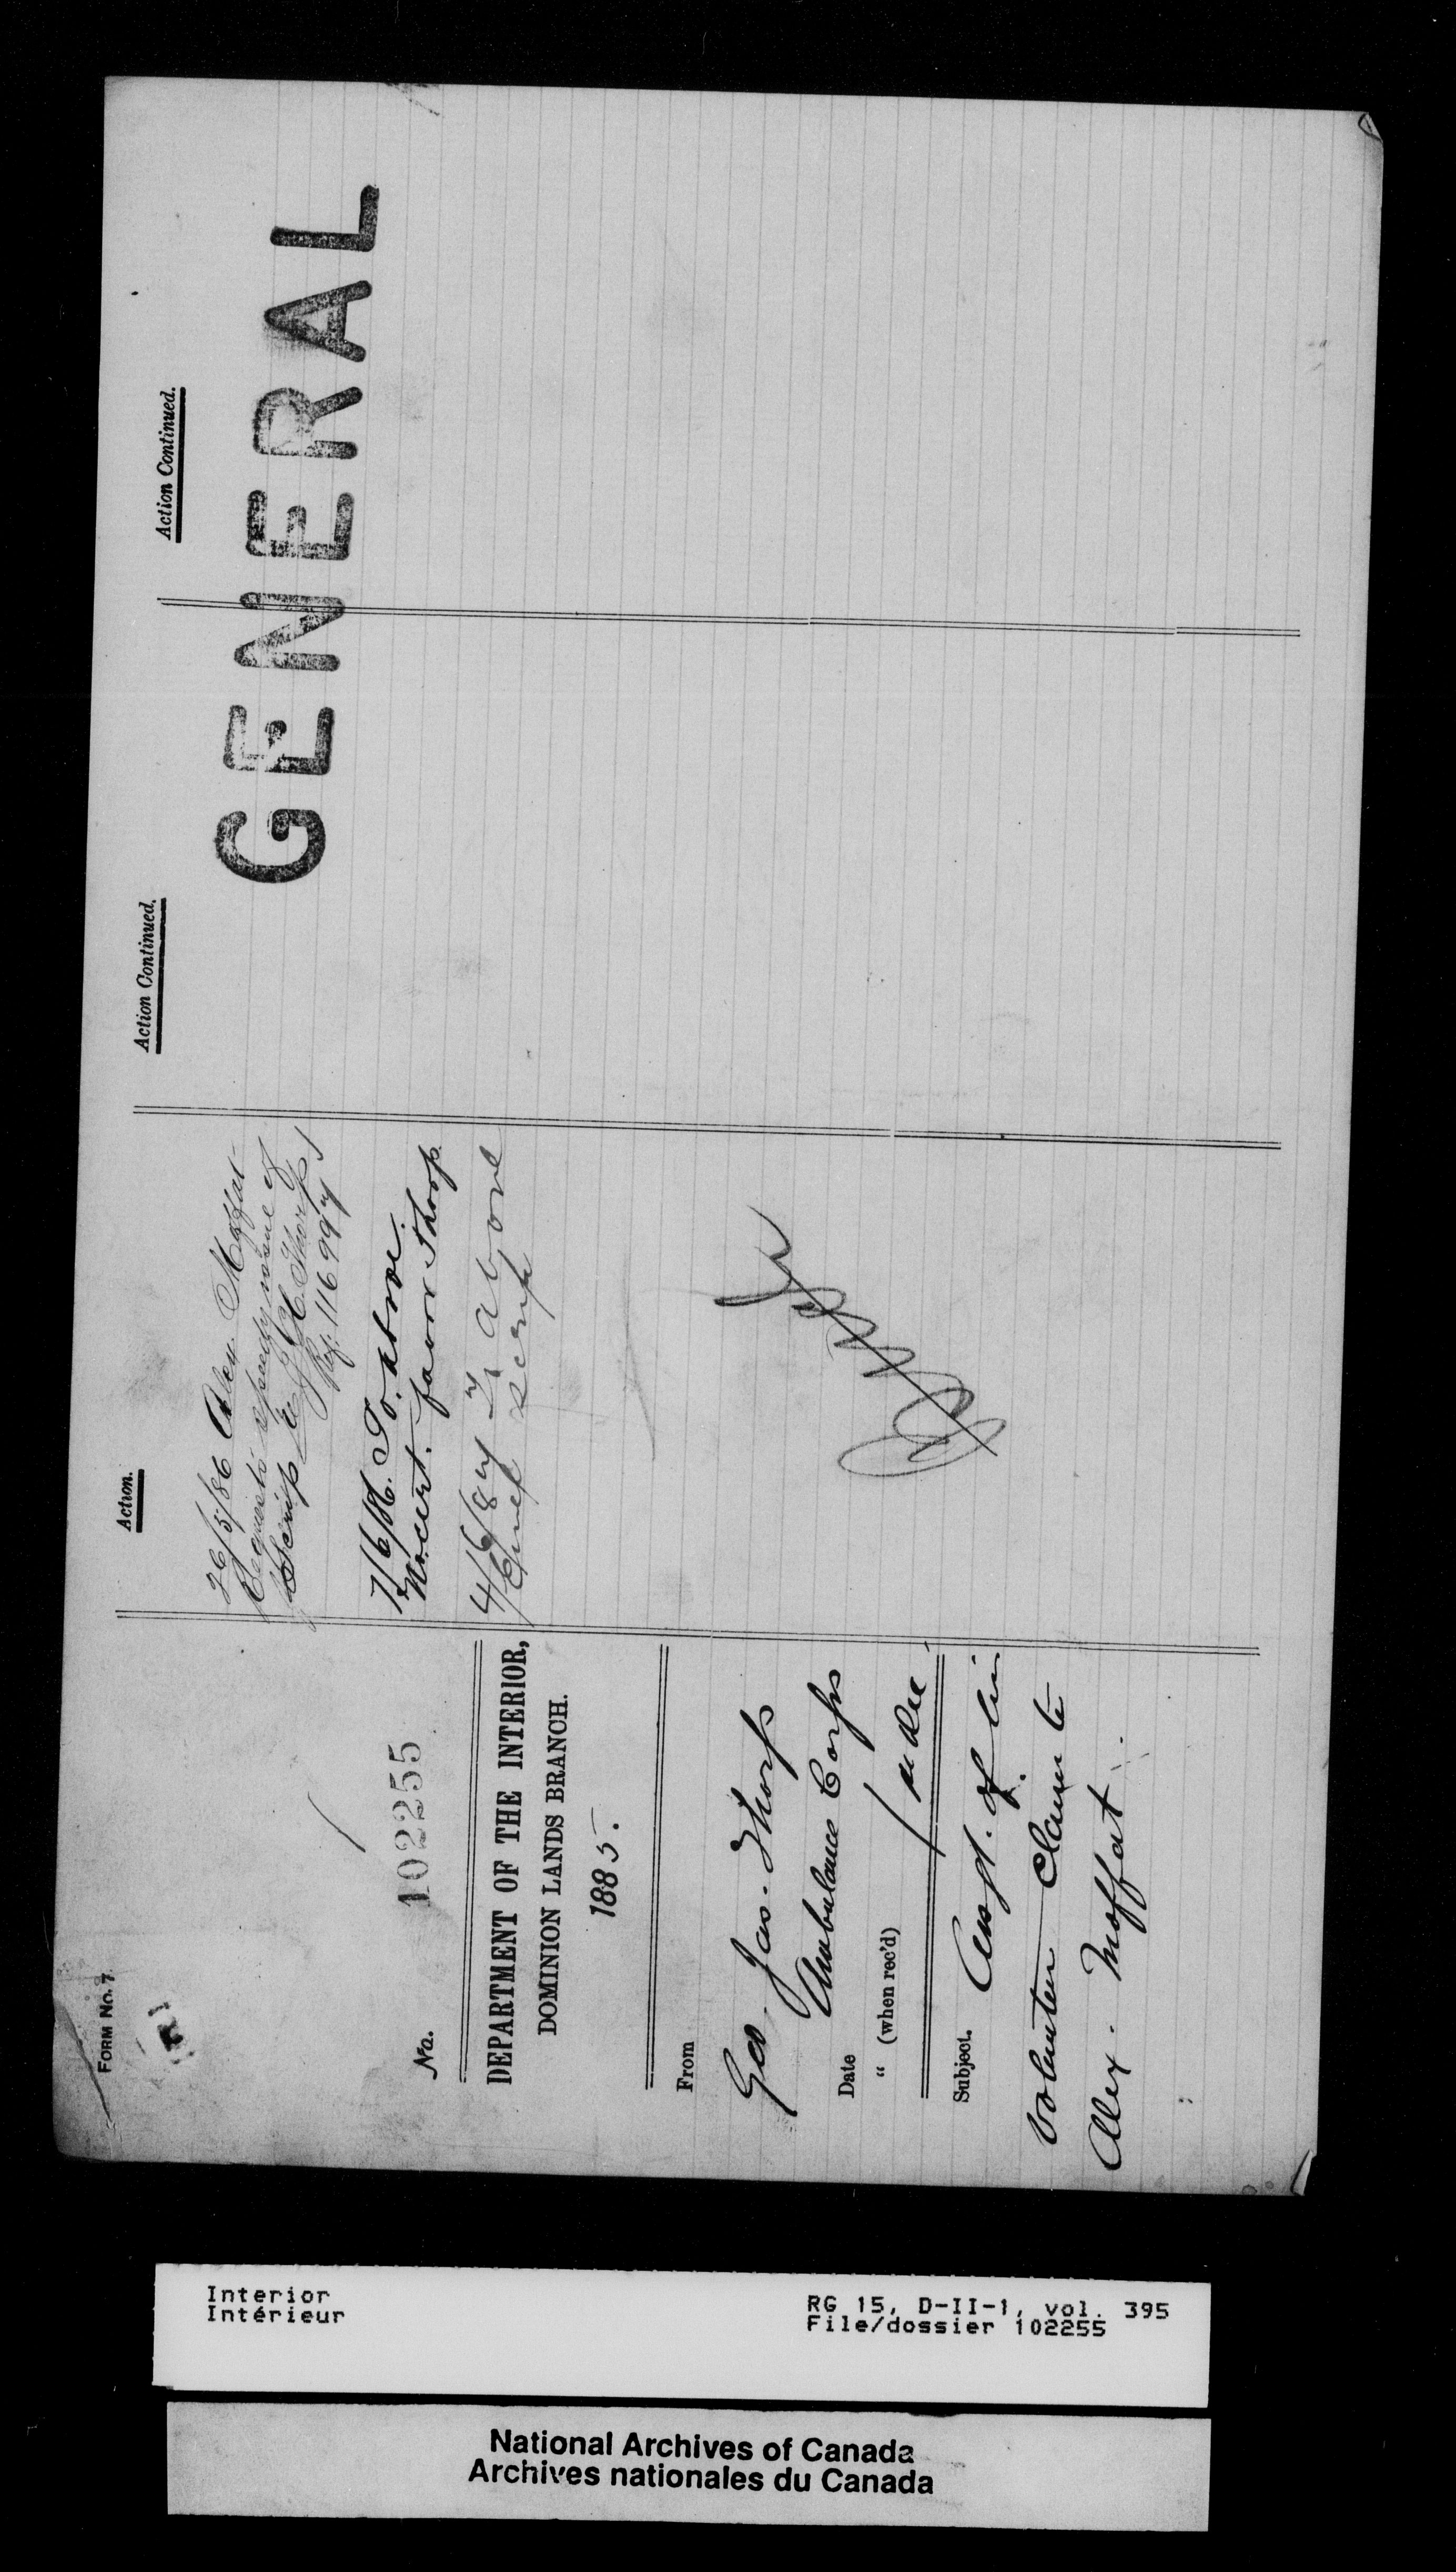 FORM No. 7.
No. 102255
DEPARTMENT OF THE INTERIOR,
DOMINION LANDS BRANCH.
1885.
From
Geo. Jas. Thorp
Ambulance Corps
Date
" (when rec'd)
Subject. Assgt. of his
Volunteer Claim to
Alex. Moffat.
Action.
26/5/86 Alex. Moffat
Requests speedy issue of
Scrip re G. J. Thorp
Ref. 116994
7/6/86. To above.
Wt. cert. favor Thorp.
4/6/87 To above
Encl scrip
Action Continued.
Action Continued.
GENERAL
Interior
Intérieur
RG 15, D-II-1, vol. 395
File/dossier 102255
National Archives of Canada
Archives nationales du Canada